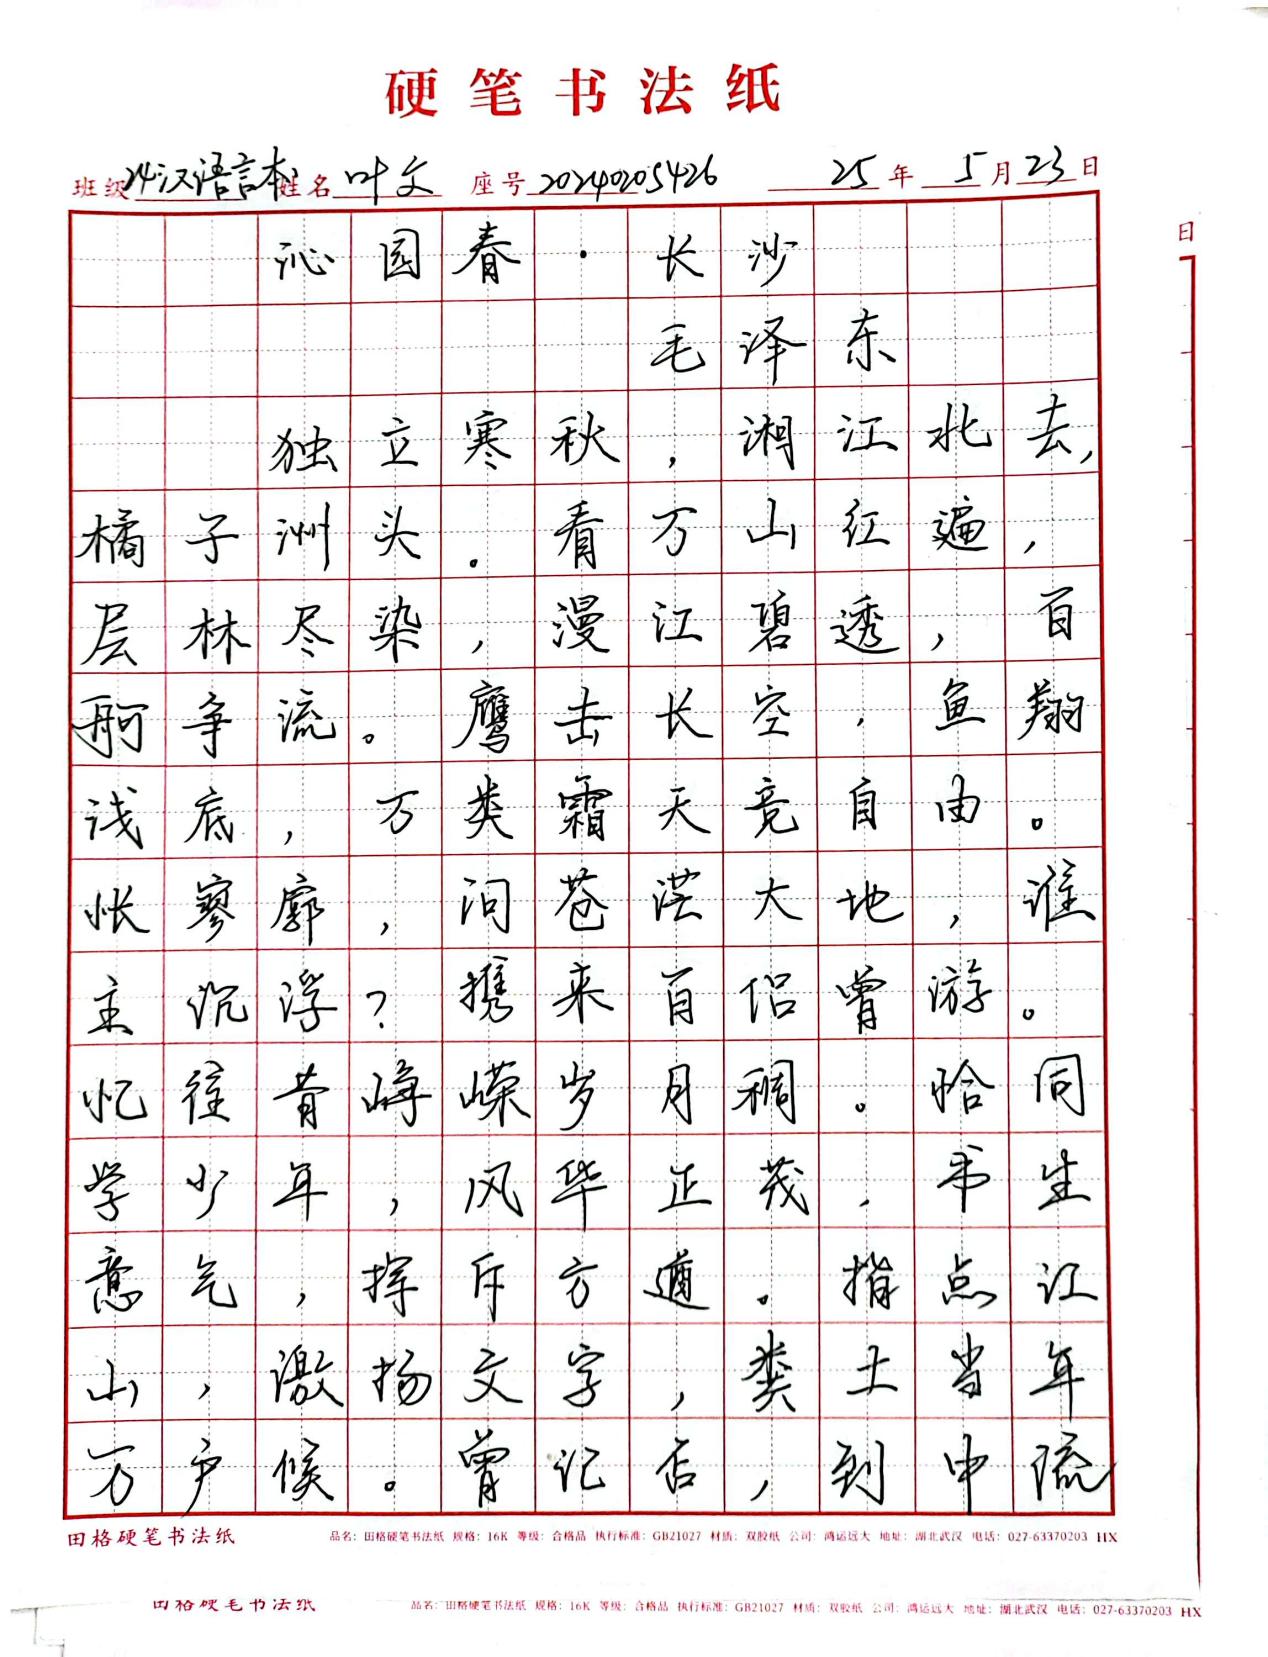 硬笔书法纸
班级 24汉语言本2 姓名 叶文 座号 20240205426 25年5月23日
日
沁园春·长沙
毛泽东
独立寒秋，湘江北去，
橘子洲头。看万山红遍，
层林尽染，漫江碧透，百
舸争流。鹰击长空，鱼翔
浅底，万类霜天竞自由。
怅寥廓，问苍茫大地，谁
主沉浮？携来百侣曾游。
忆往昔峥嵘岁月稠。恰同
学少年，风华正茂，书生
意气，挥斥方遒。指点江
山，激扬文字，粪土当年
万户候。曾记否，到中流
田格硬笔书法纸 品名：田格硬笔书法纸 规格：16K 等级：合格品 执行标准：GB21027 材质：双胶纸 公司：鸿运远大 地址：湖北武汉 电话：027-63370203 HX
田格硬笔书法纸 品名：田格硬笔书法纸 规格：16K 等级：合格品 执行标准：GB21027 材质：双胶纸 公司：鸿运远大 地址：湖北武汉 电话：027-63370203 HX